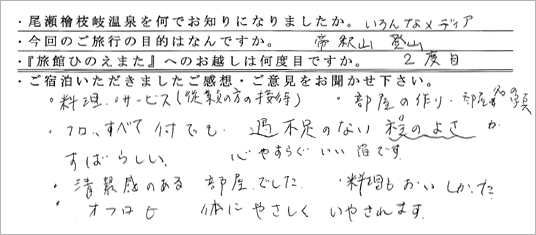 ・尾瀬檜枝岐温泉を何でお知りになりましたか。いろんなメディア
・今回のご旅行の目的はなんですか。 帝釈山 登山
・『旅館ひのえまた』へのお越しは何度目ですか。 2度目
・ご宿泊いただきましたご感想・ご意見をお聞かせ下さい。
・料理・サービス(従業の方の接待) ・部屋の作り・部屋
・フロ、すべて 付でも 過不足のない よさ が
すばらしい。 心やすらぐ いい 宿です
・清潔感のある 部屋でした ・料理もおいしかった
・オフロも 体にやさしく いやされます。